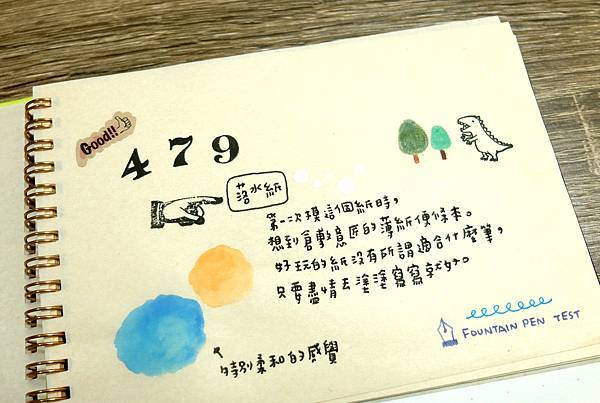 Good!!
479
落水紙
第一次摸這個紙時，
想到倉敷意匠的薄紙便條本。
好玩的紙沒有所謂適合什麼筆，
只要盡情去塗塗寫寫就好。
特別柔和的感覺
FOUNTAIN PEN TEST